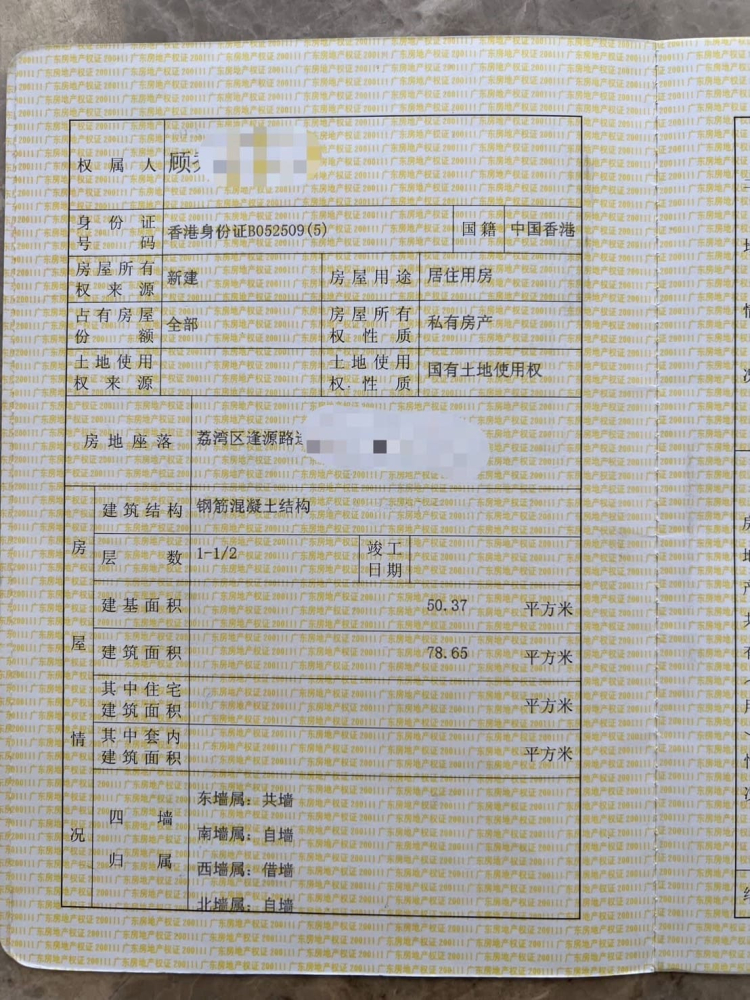 权属人 顾
身份证号码 香港身份证B052509(5) 国籍 中国香港
房屋所有权来源 新建 房屋用途 居住用房
占有房屋份额 全部 房屋所有权性质 私有房产
土地使用权来源 土地使用权性质 国有土地使用权
房地座落 荔湾区逢源路
房屋情况
建筑结构 钢筋混凝土结构
层数 1-1/2 竣工日期
建基面积 50.37 平方米
建筑面积 78.65 平方米
其中住宅建筑面积 平方米
其中套内建筑面积 平方米
四墙归属 东墙属：共墙
南墙属：自墙
西墙属：借墙
北墙属：自墙